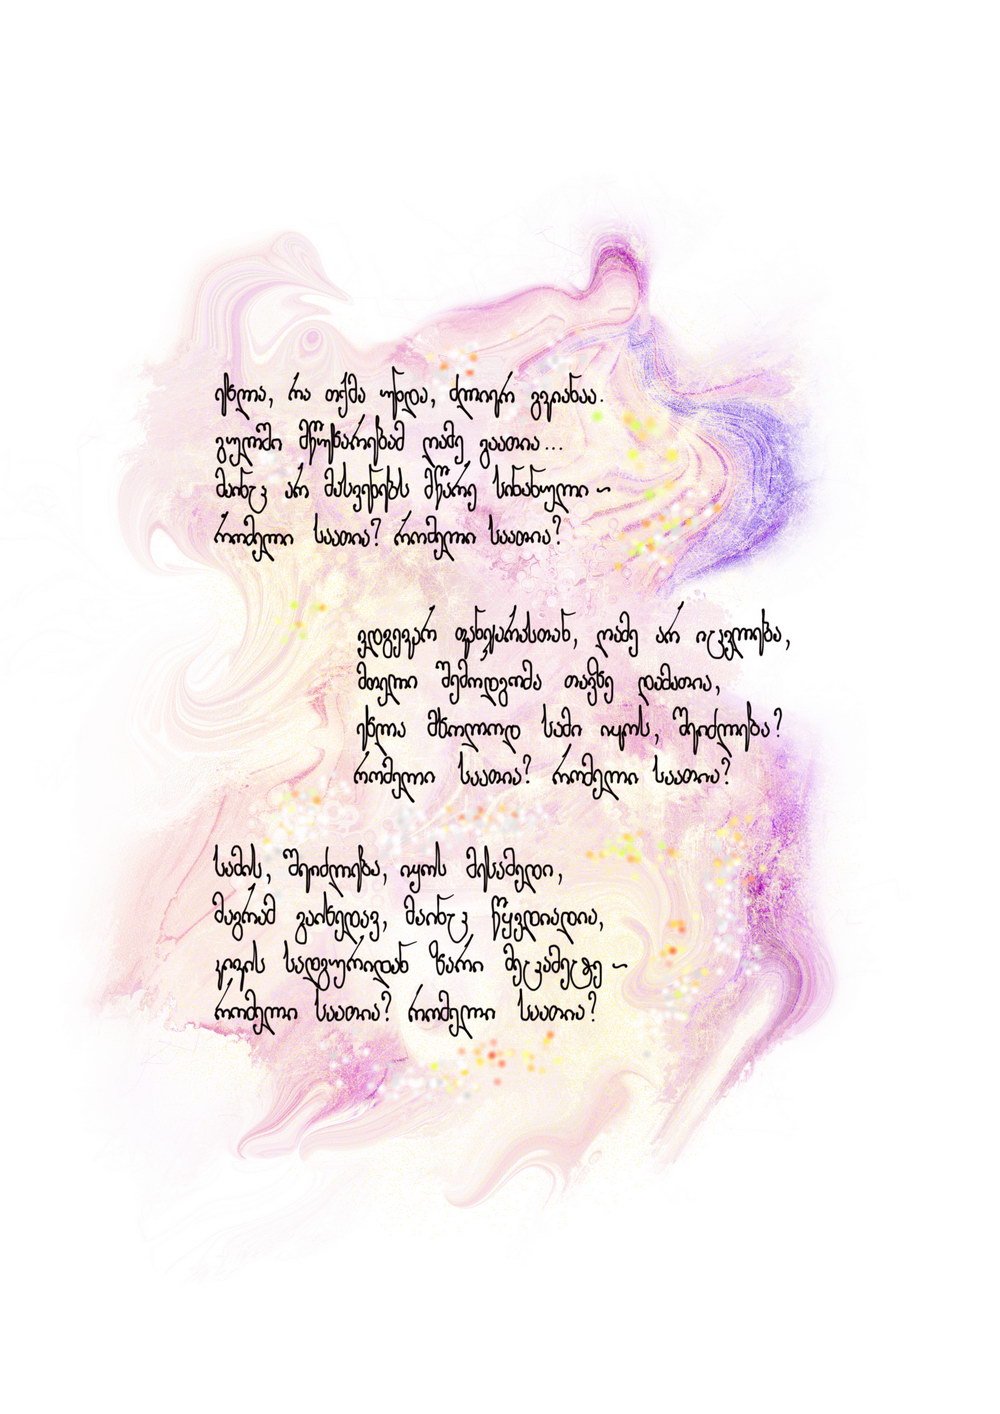 ეხლა, რა თქმა უნდა, ძლიერ გვიანაა.
გულში მწუხარებამ ღამე გაათია...
მაინც არ მასვენებს მწარე სინანული ~
რომელი საათია? რომელი საათია?
ვდგევარ ფანჯარასთან, ღამე არ იცვლება,
მთელი შემოდგომა თავზე დამათია,
ეხლა მხოლოდ სამი იყოს, შეიძლება?
რომელი საათია? რომელი საათია?
სამის, შეიძლება, იყოს მესამედი,
მაგრამ გაიხედავ, მაინც წყვდიადია,
კივის სადგურიდან ზარი მეცამეტე ~
რომელი საათია? რომელი საათია?